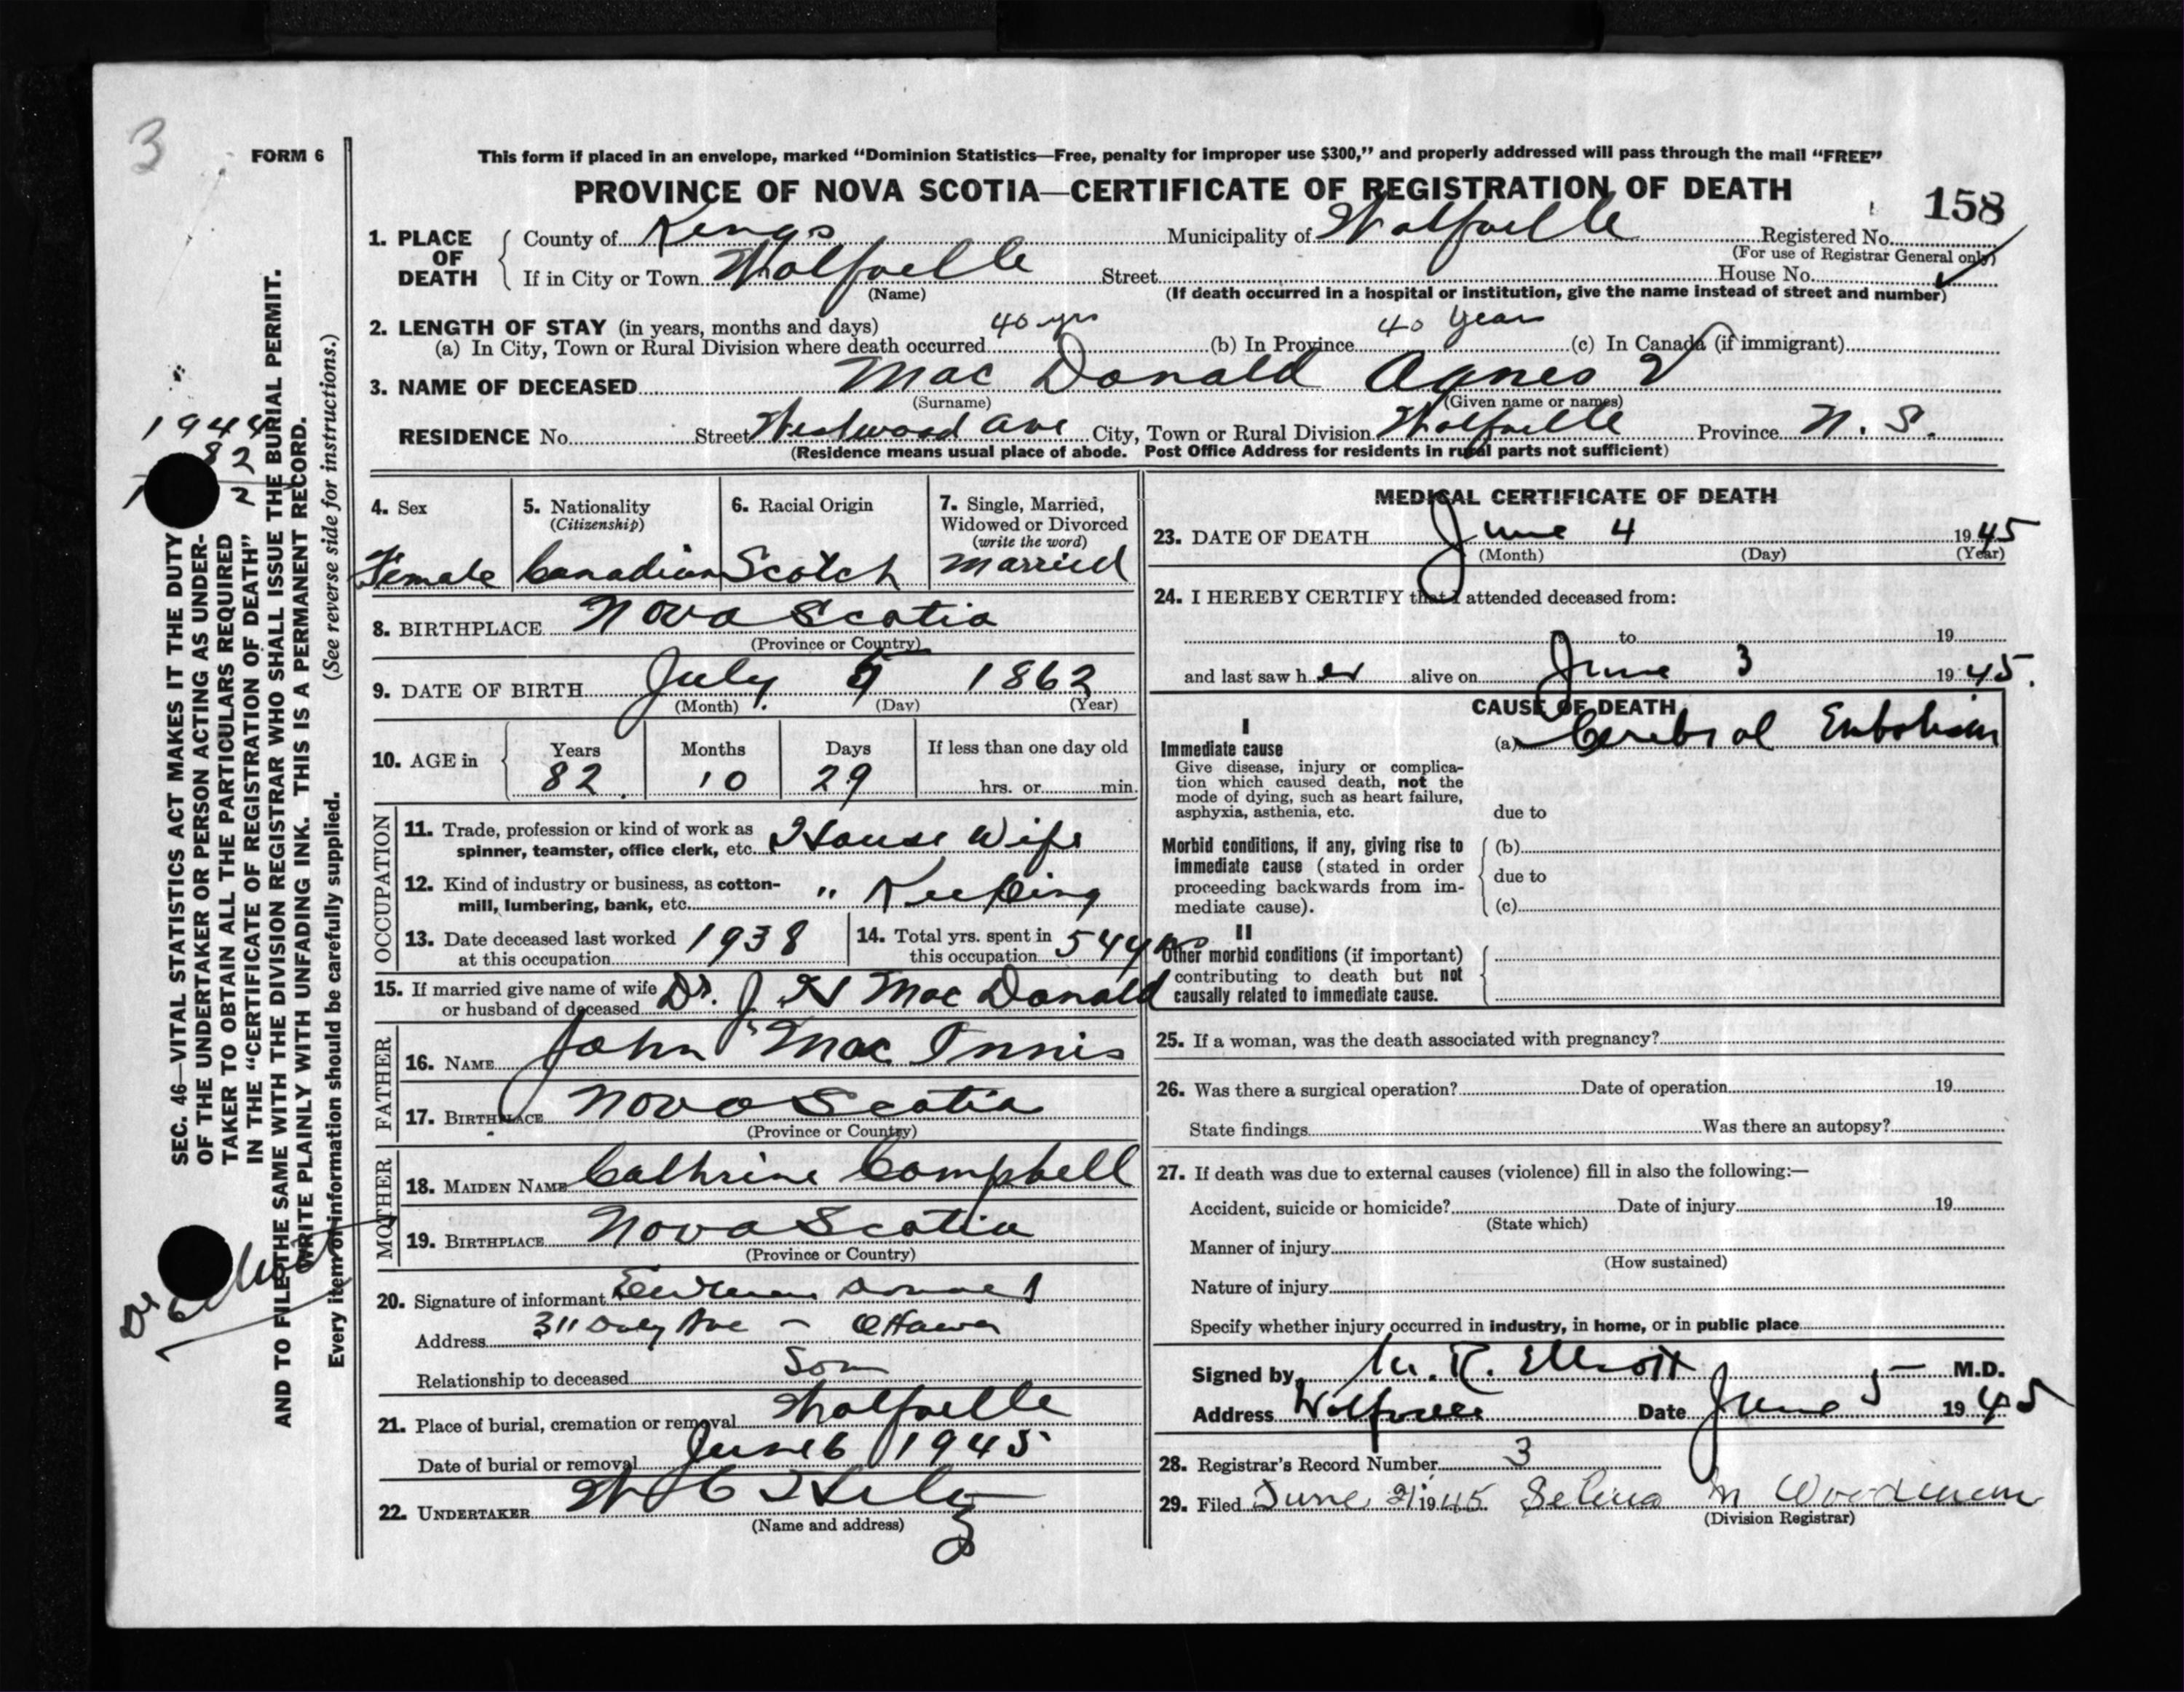 3
FORM 6
This form if placed in an envelope, marked “Dominion Statistics—Free, penalty for improper use $300,” and properly addressed will pass through the mail “FREE”
PROVINCE OF NOVA SCOTIA—CERTIFICATE OF REGISTRATION OF DEATH
158
1. PLACE OF DEATH
County of Kings Municipality of Wolfville Registered No.
(For use of Registrar General only)
If in City or Town Wolfville Street House No.
(Name) (If death occurred in a hospital or institution, give the name instead of street and number)
2. LENGTH OF STAY (in years, months and days)
(a) In City, Town or Rural Division where death occurred 40 yrs (b) In Province 40 Years (c) In Canada (if immigrant)
3. NAME OF DECEASED Mac Donald Agnes
(Surname) (Given name or names)
RESIDENCE No. Street Westwood Ave City, Town or Rural Division Wolfville Province N. S.
(Residence means usual place of abode. Post Office Address for residents in rural parts not sufficient)
SEC. 46—VITAL STATISTICS ACT MAKES IT THE DUTY
OF THE UNDERTAKER OR PERSON ACTING AS UNDER-
TAKER TO OBTAIN ALL THE PARTICULARS REQUIRED
IN THE “CERTIFICATE OF REGISTRATION OF DEATH”
AND TO FILE THE SAME WITH THE DIVISION REGISTRAR WHO SHALL ISSUE THE BURIAL PERMIT.
WRITE PLAINLY WITH UNFADING INK. THIS IS A PERMANENT RECORD.
Every item of information should be carefully supplied. (See reverse side for instructions.)
1944
82
2
Dr
4. Sex Female
5. Nationality (Citizenship) Canadian
6. Racial Origin Scotch
7. Single, Married, Widowed or Divorced (write the word) Married
8. BIRTHPLACE Nova Scotia
(Province or Country)
9. DATE OF BIRTH July 5 1862
(Month) (Day) (Year)
10. AGE in Years 82 Months 10 Days 29 If less than one day old hrs. or min.
OCCUPATION
11. Trade, profession or kind of work as spinner, teamster, office clerk, etc. House Wife
12. Kind of industry or business, as cotton-mill, lumbering, bank, etc. " Keeping
13. Date deceased last worked at this occupation 1938
14. Total yrs. spent in this occupation 54 yrs
15. If married give name of wife or husband of deceased Dr. J H Mac Donald
FATHER
16. NAME John Mac Innis
17. BIRTHPLACE Nova Scotia
(Province or Country)
MOTHER
18. MAIDEN NAME Cathrine Campbell
19. BIRTHPLACE Nova Scotia
(Province or Country)
20. Signature of informant
Address 311 Daly Ave - Ottawa
Relationship to deceased Son
21. Place of burial, cremation or removal Wolfville
Date of burial or removal June 6 1945
22. UNDERTAKER W C
(Name and address)
MEDICAL CERTIFICATE OF DEATH
23. DATE OF DEATH June 4 1945
(Month) (Day) (Year)
24. I HEREBY CERTIFY that I attended deceased from:
to 19
and last saw h er alive on June 3 19 45.
CAUSE OF DEATH
I
Immediate cause
Give disease, injury or complica-
tion which caused death, not the
mode of dying, such as heart failure,
asphyxia, asthenia, etc.
(a) Cerebral Embolism
due to
Morbid conditions, if any, giving rise to
immediate cause (stated in order
proceeding backwards from im-
mediate cause).
(b)
due to
(c)
II
Other morbid conditions (if important)
contributing to death but not
causally related to immediate cause.
25. If a woman, was the death associated with pregnancy?
26. Was there a surgical operation? Date of operation 19
State findings Was there an autopsy?
27. If death was due to external causes (violence) fill in also the following:—
Accident, suicide or homicide? Date of injury 19
(State which)
Manner of injury
(How sustained)
Nature of injury
Specify whether injury occurred in industry, in home, or in public place
Signed by M. R. Elliott M.D.
Address Wolfville Date June 5 19 45
28. Registrar's Record Number 3
29. Filed June 1945 Selena M Woodman
(Division Registrar)